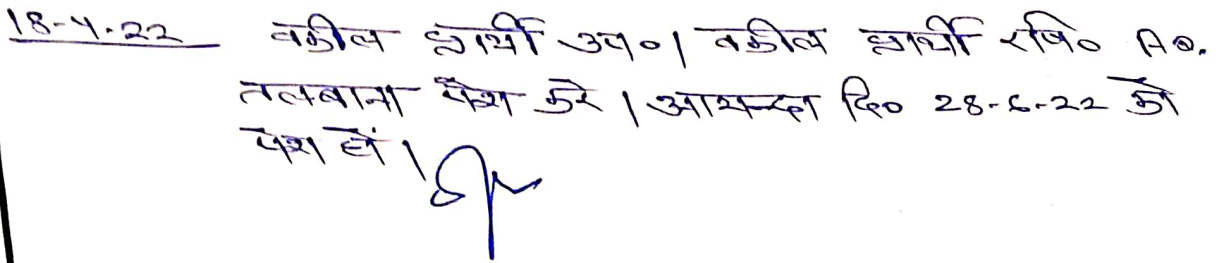 18-4-22 वकील प्रार्थी उप०। वकील प्रार्थी रजि० A.D.
तलबाना पेश करे। आयन्दा दि० 28-6-22 को
पेश हो।